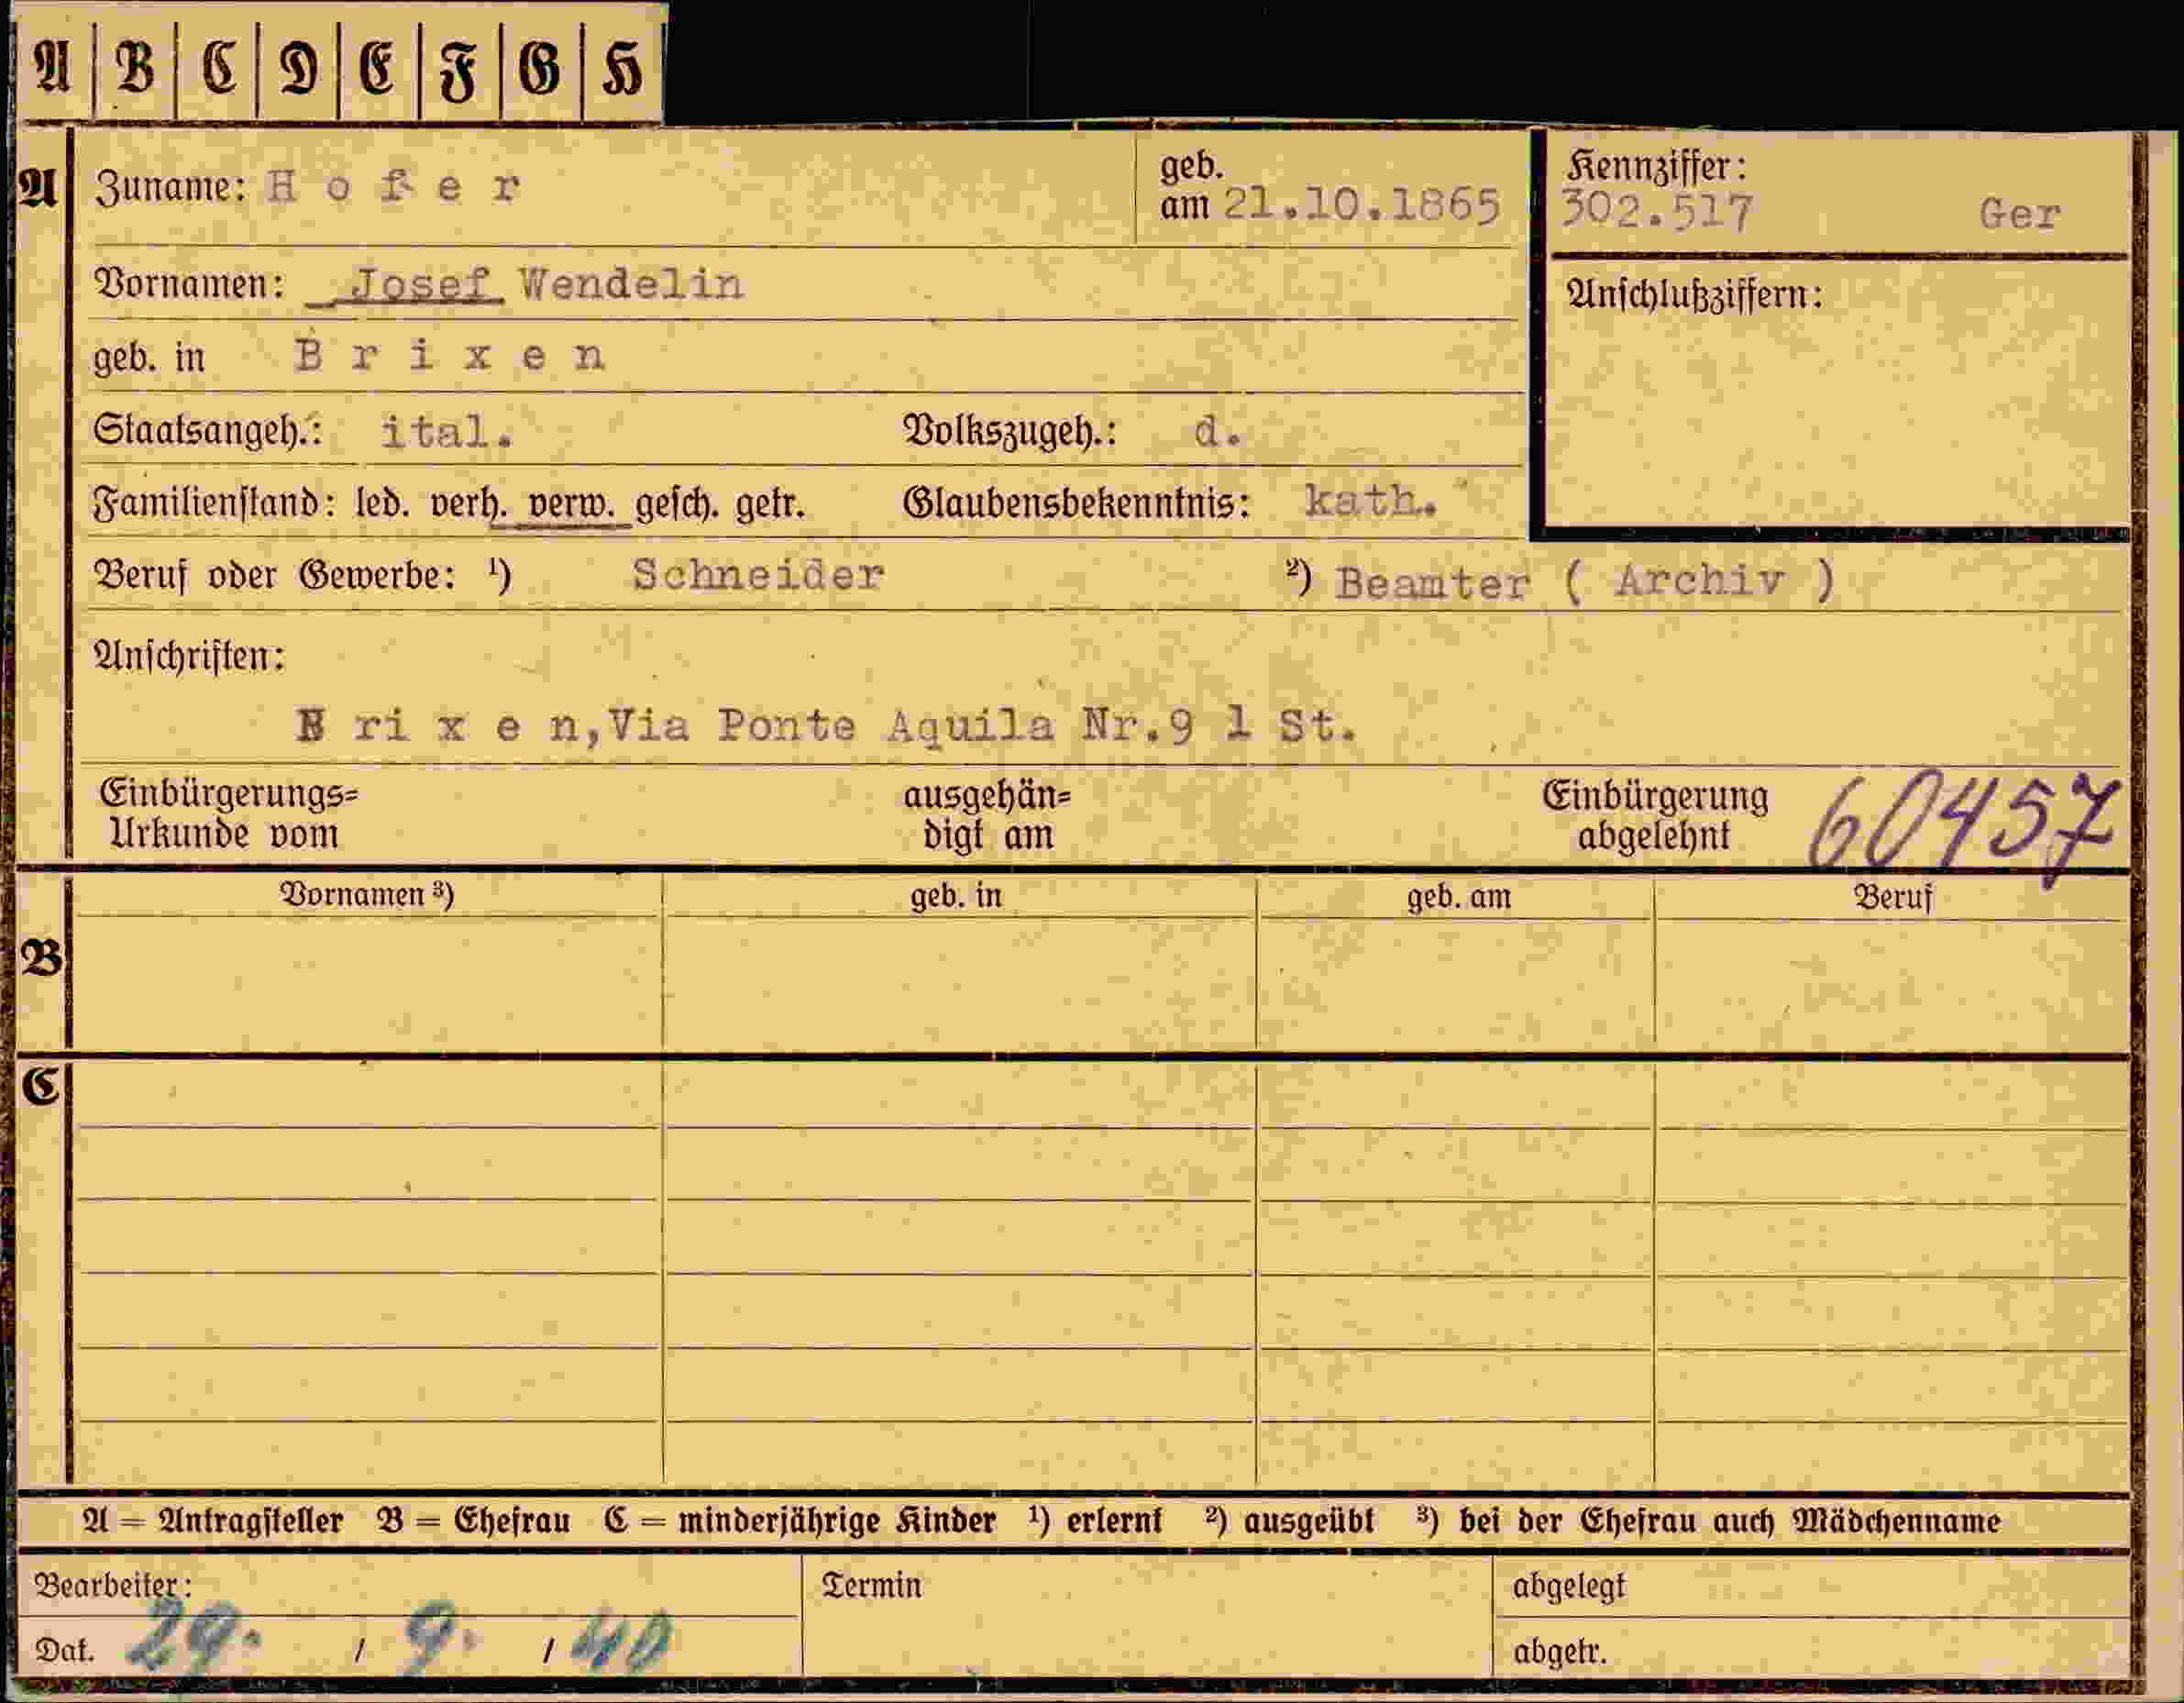 A B C D E F G H
A Zuname: H o f e r geb. am 21.10.1865 Kennziffer: 302.517 Ger
Vornamen: Josef Wendelin Anschlußziffern:
geb. in B r i x e n
Staatsangeh.: ital. Volkszugeh.: d.
Familienstand: led. verh. verw. gesch. getr. Glaubensbekenntnis: kath.
Beruf oder Gewerbe: ¹) Schneider ²) Beamter ( Archiv )
Anschriften:
B ri x e n,Via Ponte Aquila Nr.9 1 St.
Einbürgerungs= ausgehän= Einbürgerung 60457
Urkunde vom digt am abgelehnt
Vornamen ³) geb. in geb. am Beruf
B
C
A = Antragsteller B = Ehefrau C = minderjährige Kinder ¹) erlernt ²) ausgeübt ³) bei der Ehefrau auch Mädchenname
Bearbeiter: Termin abgelegt
Dat. 29. / 9. / 40 abgetr.